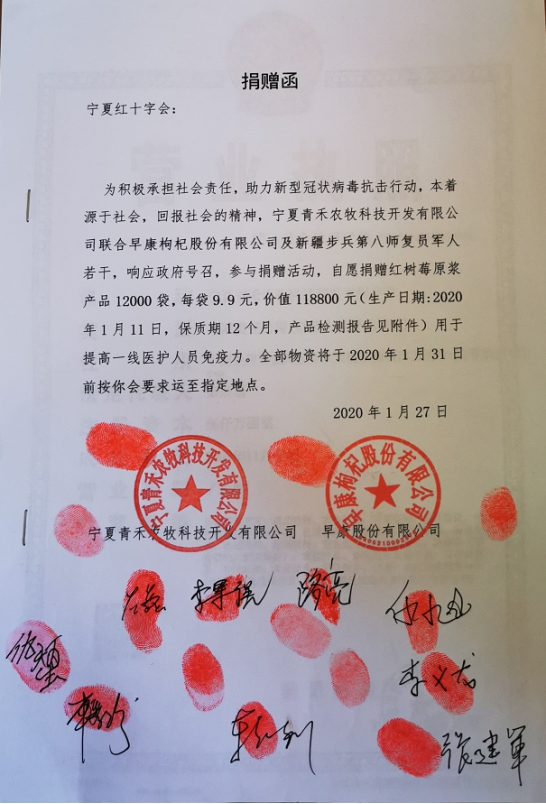 捐赠函
宁夏红十字会：
为积极承担社会责任，助力新型冠状病毒抗击行动，本着
源于社会，回报社会的精神，宁夏青禾农牧科技开发有限公
司联合早康枸杞股份有限公司及新疆步兵第八师复员军人
若干，响应政府号召，参与捐赠活动，自愿捐赠红树莓原浆
产品 12000 袋，每袋 9.9 元，价值 118800 元（生产日期：2020
年 1 月 11 日，保质期 12 个月，产品检测报告见附件）用于
提高一线医护人员免疫力。全部物资将于 2020 年 1 月 31 日
前按你会要求运至指定地点。
2020 年 1 月 27 日
宁夏青禾农牧科技开发有限公司
早康枸杞股份有限公司
宁夏青禾农牧科技开发有限公司 早康股份有限公司
李义龙
张建军